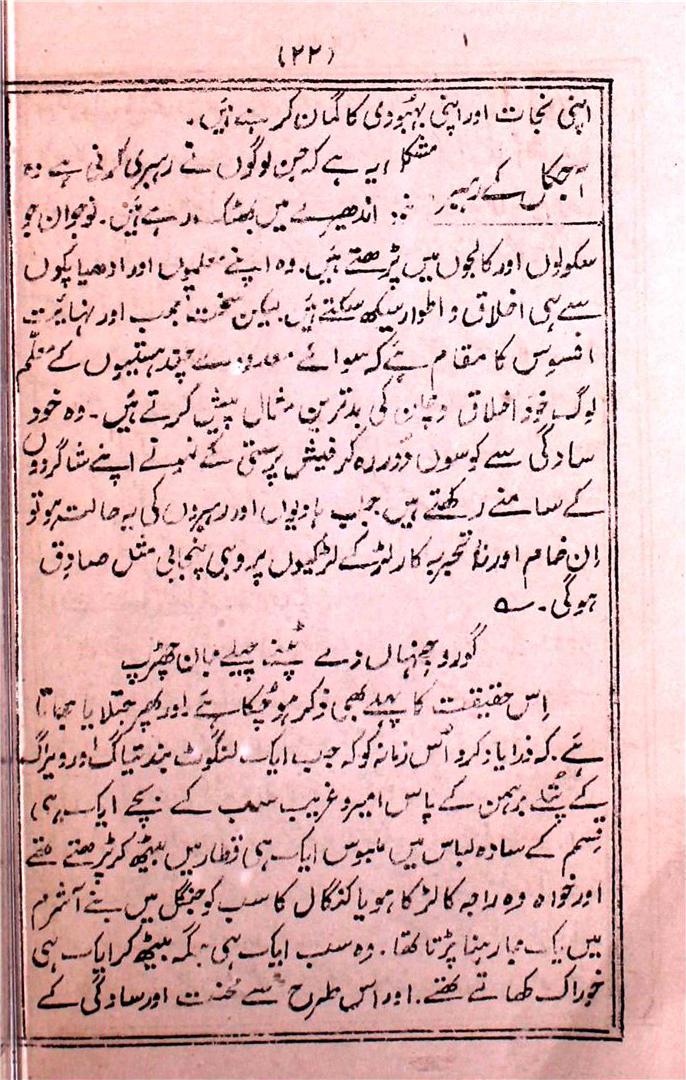 (۲۲)
اپنی نجات اور اپنی بہبودی کا گمان کر بیٹھتے ہیں۔
آجکل کے رہبر
مشکل یہ ہے کہ جن لوگوں نے رہبری کرنی ہے وہ
خود اندھیرے میں بھٹک رہے ہیں۔ نوجوان جو
سکولوں اور کالجوں میں پڑھتے ہیں۔ وہ اپنے معلموں اور ادھیاپکوں
سے ہی اخلاق و اطوار سیکھ سکتے ہیں۔ لیکن سخت تعجب اور نہایت
افسوس کا مقام ہے کہ سوائے معدودے چند ہستیوں کے معلّم
لوگ خود اخلاق و چلن کی بدترین مثال پیش کرتے ہیں۔ وہ خود
سادگی سے کوسوں دُور رہ کر فیشن پرستی کے نمونے اپنے شاگردوں
کے سامنے رکھتے ہیں۔ جب ہادیوں اور رہبروں کی یہ حالت ہو تو
اِن خام اور ناتجربہ کار لڑکے لڑکیوں پر وہی پنجابی مثل صادق
ہوگی۔ ؎
گورو جنہاں دے ٹپنے چیلے جان چھڑپ
اِس حقیقت کا پہلے بھی ذکر ہو چکا ہے اور پھر جتلایا جاتا
ہے۔ کہ ذرا یاد کرو اُس زمانہ کو کہ جب ایک لنگوٹ بند تیاگ اور ویراگ
کے پتلے برہمن کے پاس امیر و غریب سب کے بچے ایک ہی
قسم کے سادہ لباس میں ملبوس ایک ہی قطار میں بیٹھ کر پڑھتے تھے
اور خواہ وہ راجہ کا لڑکا ہو یا کنگال کا سب کو جنگل میں بنے آشرم
میں یک جا رہنا پڑتا تھا۔ وہ سب ایک ہی جگہ بیٹھ کر ایک ہی
خوراک کھاتے تھے۔ اور اس طرح سے محنت اور سادگی کے